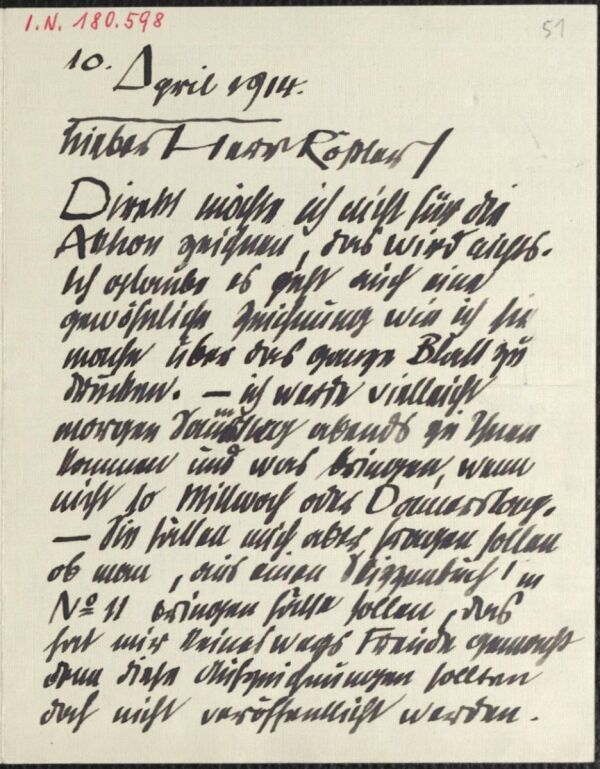 I.N. 180.598
51
10. April 1914.
Lieber Herr Rößler!
Direkt möchte ich nicht für die
Aktion zeichnen, das wird nichts.
Ich glaube es geht auch eine
gewöhnliche Zeichnung wie ich sie
mache über das ganze Blatt zu
drucken. – ich werde vielleicht
morgen Samstag abends zu Ihnen
kommen und was bringen, wenn
nicht so Mittwoch oder Donnerstag.
– Sie hätten mich aber fragen sollen
ob man, aus einen Skizzenbuch' in
No 11 bringen hätte sollen, das
hat mir keineswegs Freude gemacht
denn diese Aufzeichnungen sollten
doch nicht veröffentlicht werden.